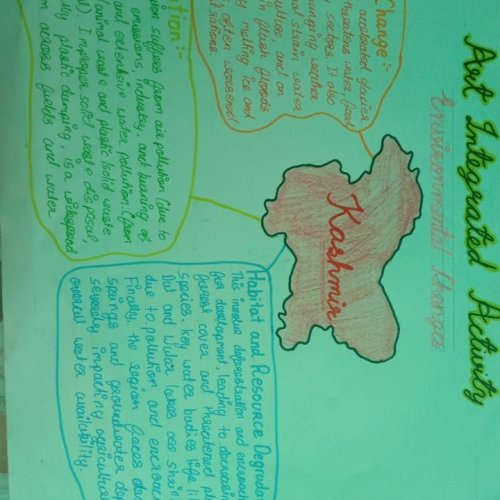 Art Integrated Activity
Environmental Changes
Kashmir
Change :-
accelerated glacier
threatens water, food
y sectors. It also
weather
and strain water
culture and an
flash floods
melting ice and
often worsened
:-
suffers from air pollution (due to
emissions, industry, and burning of
and extensive water pollution (from
animal waste and plastic/solid waste
). Improper solid waste disposal,
plastic dumping, is a widespread
across fields and water
Habitat and Resource Degrada
This involve deforestation and
for development, leading to
forest cover and threatened
species. Key water bodies like
Dal and Wular lakes are
due to pollution and
Finally, the region faces
springs and groundwater
severely impacting agriculture
overall water availability.